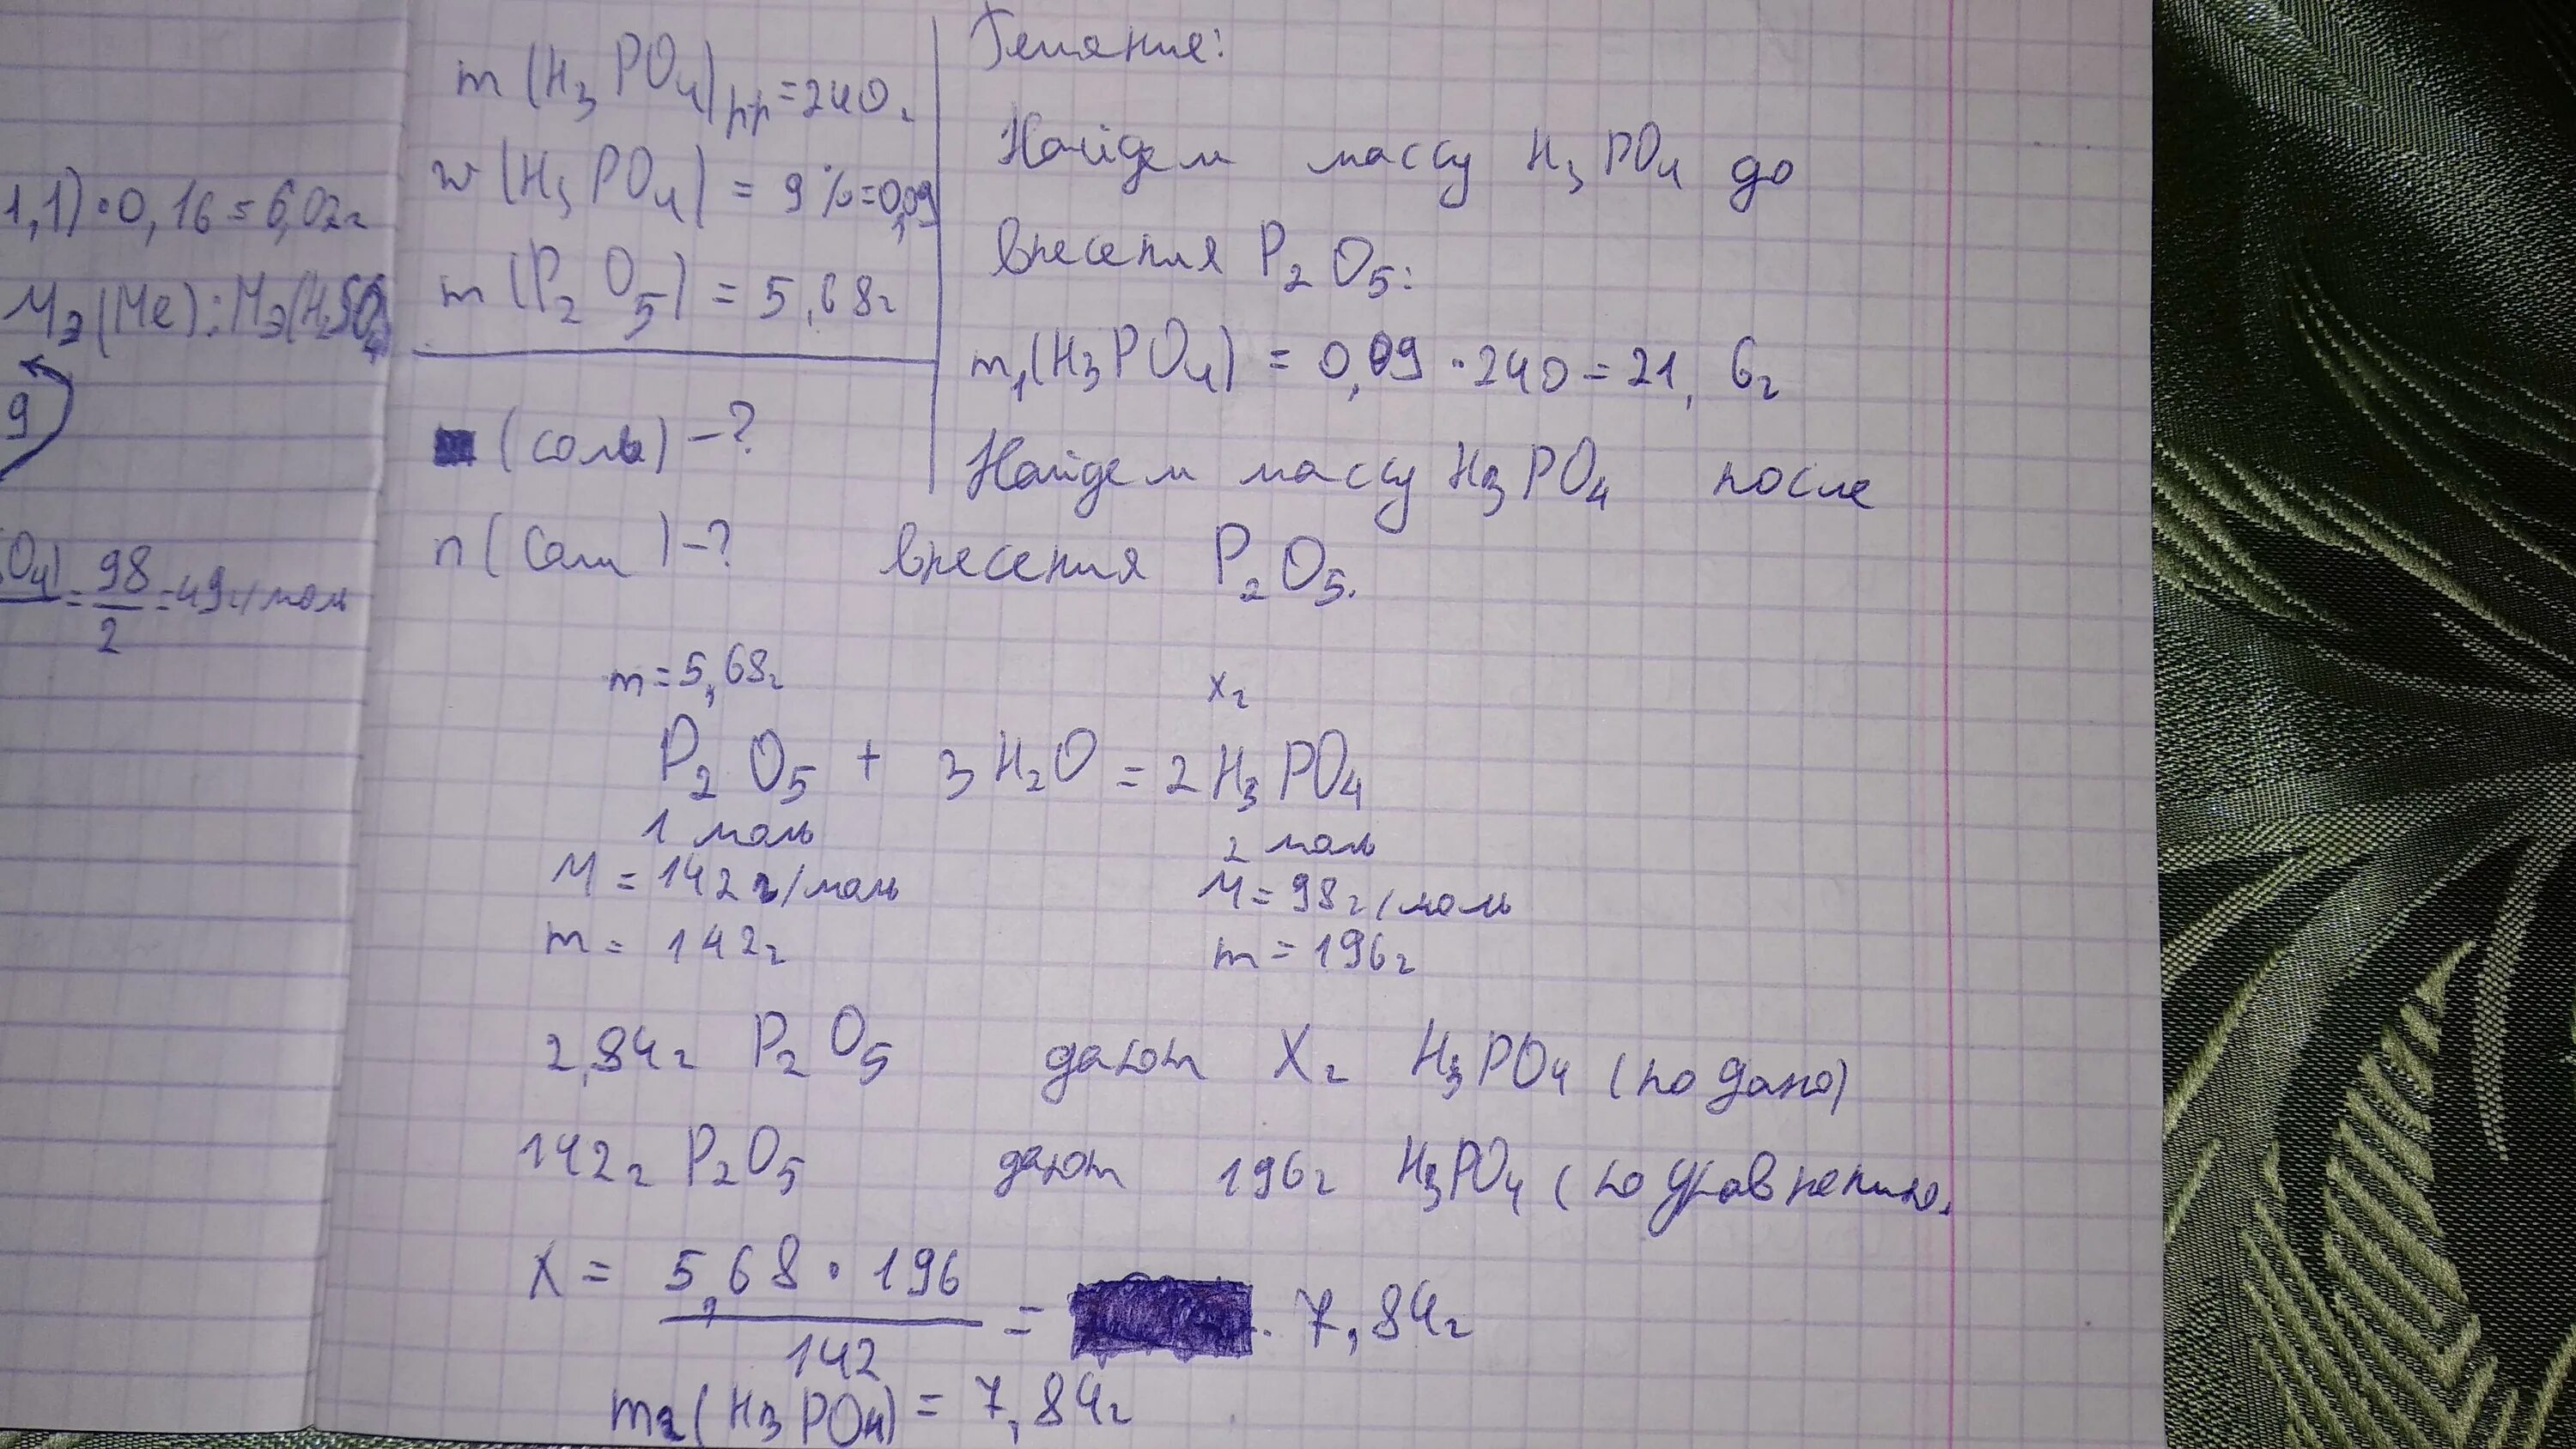 1,1)·0,16=6,02г
Mэ(Me):Mэ(H2SO4
9
O4)=98/2=49г/моль
m(H3PO4)рр=240г
w(H3PO4)=9%=0,09
m(P2O5)=5,68г
(соль)-?
n(соли)-?
Решение:
Найдем массу H3PO4 до
внесения P2O5:
m1(H3PO4)=0,09·240=21,6г
Найдем массу H3PO4 после
внесения P2O5.
m=5,68г xг
P2O5+3H2O=2H3PO4
1 моль 2 моль
M=142г/моль M=98г/моль
m=142г m=196г
2,84г P2O5 дают Xг H3PO4 (по дано)
142г P2O5 дают 196г H3PO4 (по уравнению.
X=5,68·196/142=7,84г
m2(H3PO4)=7,84г